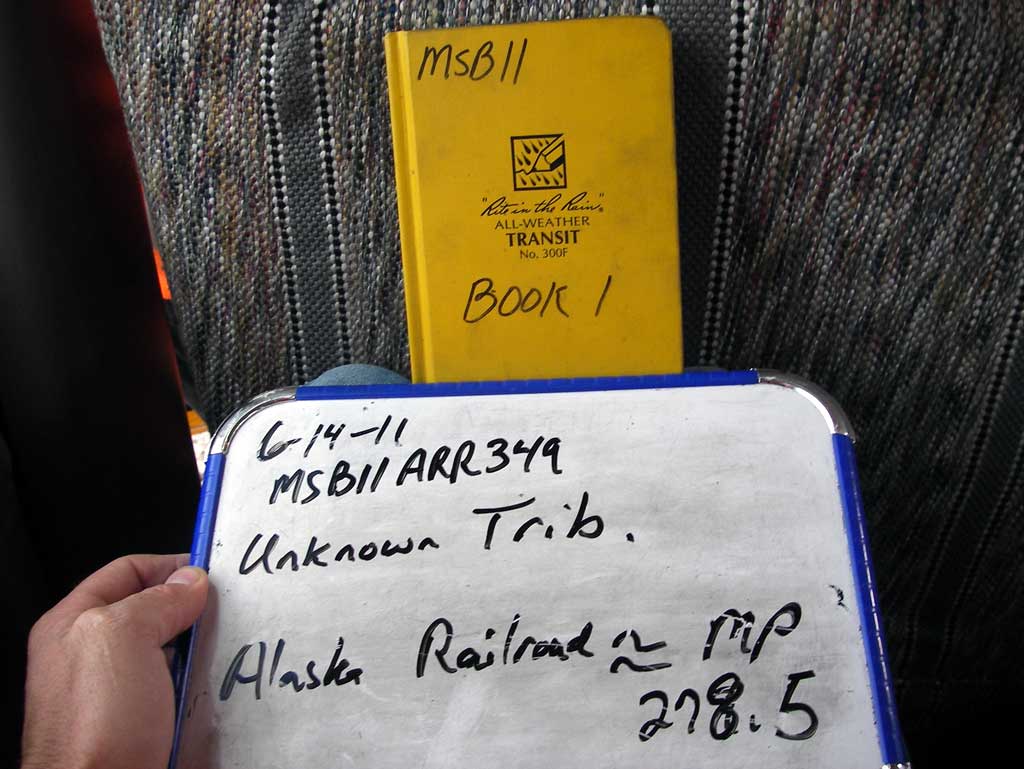 MSB11
"Rite in the Rain"®
ALL-WEATHER
TRANSIT
No. 300F
BOOK 1
6-14-11
MSB11ARR349
Unknown Trib.
Alaska Railroad ≈ MP
278.5